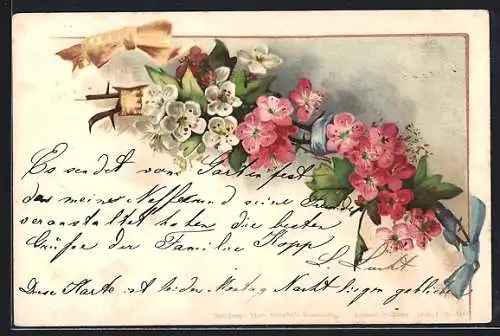 Es sendet vom Gartenfest
das meine Neffe und seine Freunde
veranstaltet haben die besten
Grüße der Familie Kopp
L. Lucht
Diese Karte ist bei der Montag Nacht liegen geblieben